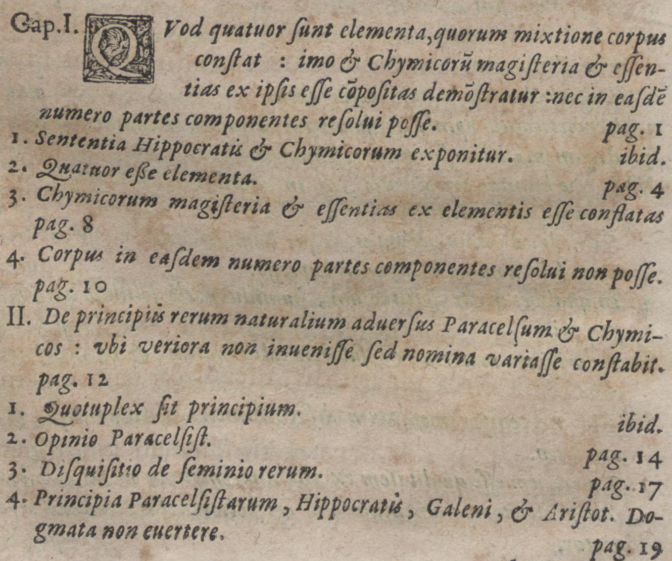 Cap. I. QVod quatuor ſunt elementa, quorum mixtione corpus
conſtat : imo & Chymicorū magiſteria & eſſen-
tias ex ipſis eſſe cōpoſitas demōſtratur : nec in eaſdē
numero partes componentes reſolui poſſe. pag. 1
1. Sententia Hippocratis & Chymicorum exponitur. ibid.
2. Quatuor eße elementa. pag. 4
3. Chymicorum magiſteria & eſſentias ex elementis eſſe conflatas
pag. 8
4. Corpus in eaſdem numero partes componentes reſolui non poſſe.
pag. 10
II. De principiis rerum naturalium aduerſus Paracelſum & Chymi-
cos : vbi veriora non inueniſſe ſed nomina variaſſe conſtabit.
pag. 12
1. Quotuplex ſit principium. ibid.
2. Opinio Paracelſiſt. pag. 14
3. Diſquiſitio de ſeminio rerum. pag. 17
4. Principia Paracelſiſtarum, Hippocratis, Galeni, & Ariſtot. Do-
gmata non euertere. pag. 19